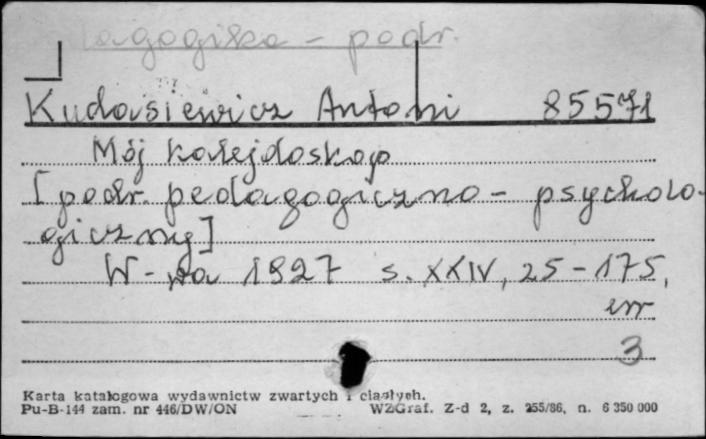 agogika - podr.
Kudasiewicz Antoni 85571
Mój kalejdoskop
[podr. pedagogiczno - psycholo-
giczny]
W-wa 1927 s. XXIV, 25-175,
err
3
Karta katalogowa wydawnictw zwartych i ciągłych.
Pu-B-144 zam. nr 446/DW/ON WZGraf. Z-d 2, z. 255/86, n. 6 350 000